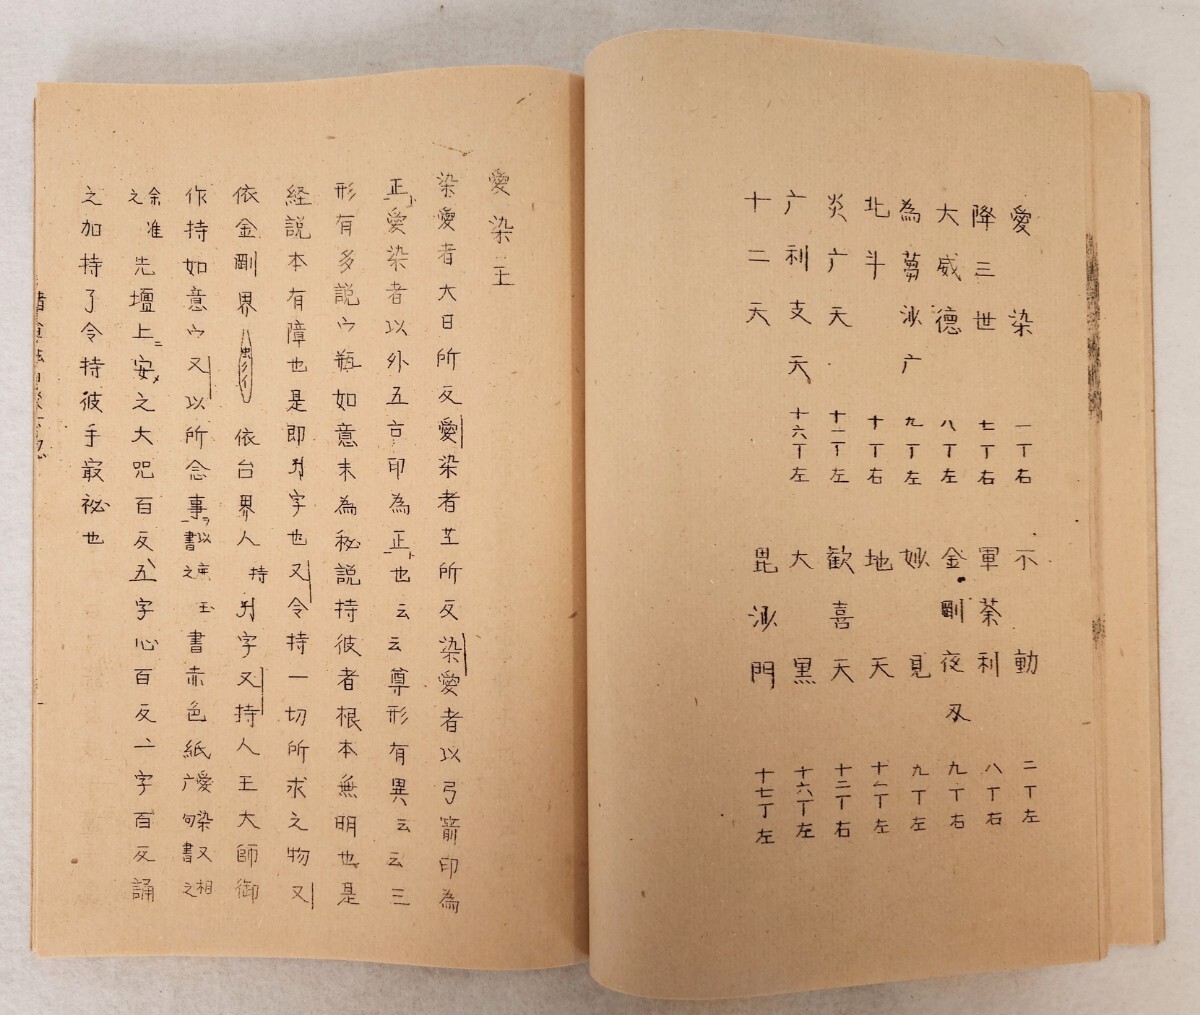 愛染 一丁右 不動 二丁左
降三世 七丁右 軍荼利 八丁右
大威德 八丁左 金剛夜叉 九丁右
為蒭沙广 九丁左 妙見 九丁左
北斗 十丁右 地天 十一丁左
炎广天 十一丁左 歓喜天 十二丁右
广利支天 十六丁左 大黒 十六丁左
十二天 毘沙門 十七丁左
愛染王
染愛者大日所反愛染者𦬇所反染愛者以弓箭印為
正愛染者以外五古印為正也云云尊形有異云云三
形有多説宀瓶如意未為秘説持彼者根本無明也是
経説本有障也是即字也又令持一切所求之物又
依金剛界依台界人持字又持人王大師御
作持如意宀又以所念事書之書赤色紙愛染又相广句書之
余准之先壇上安之大咒百反五字心百反一字百反誦
之加持了令持彼手最秘也